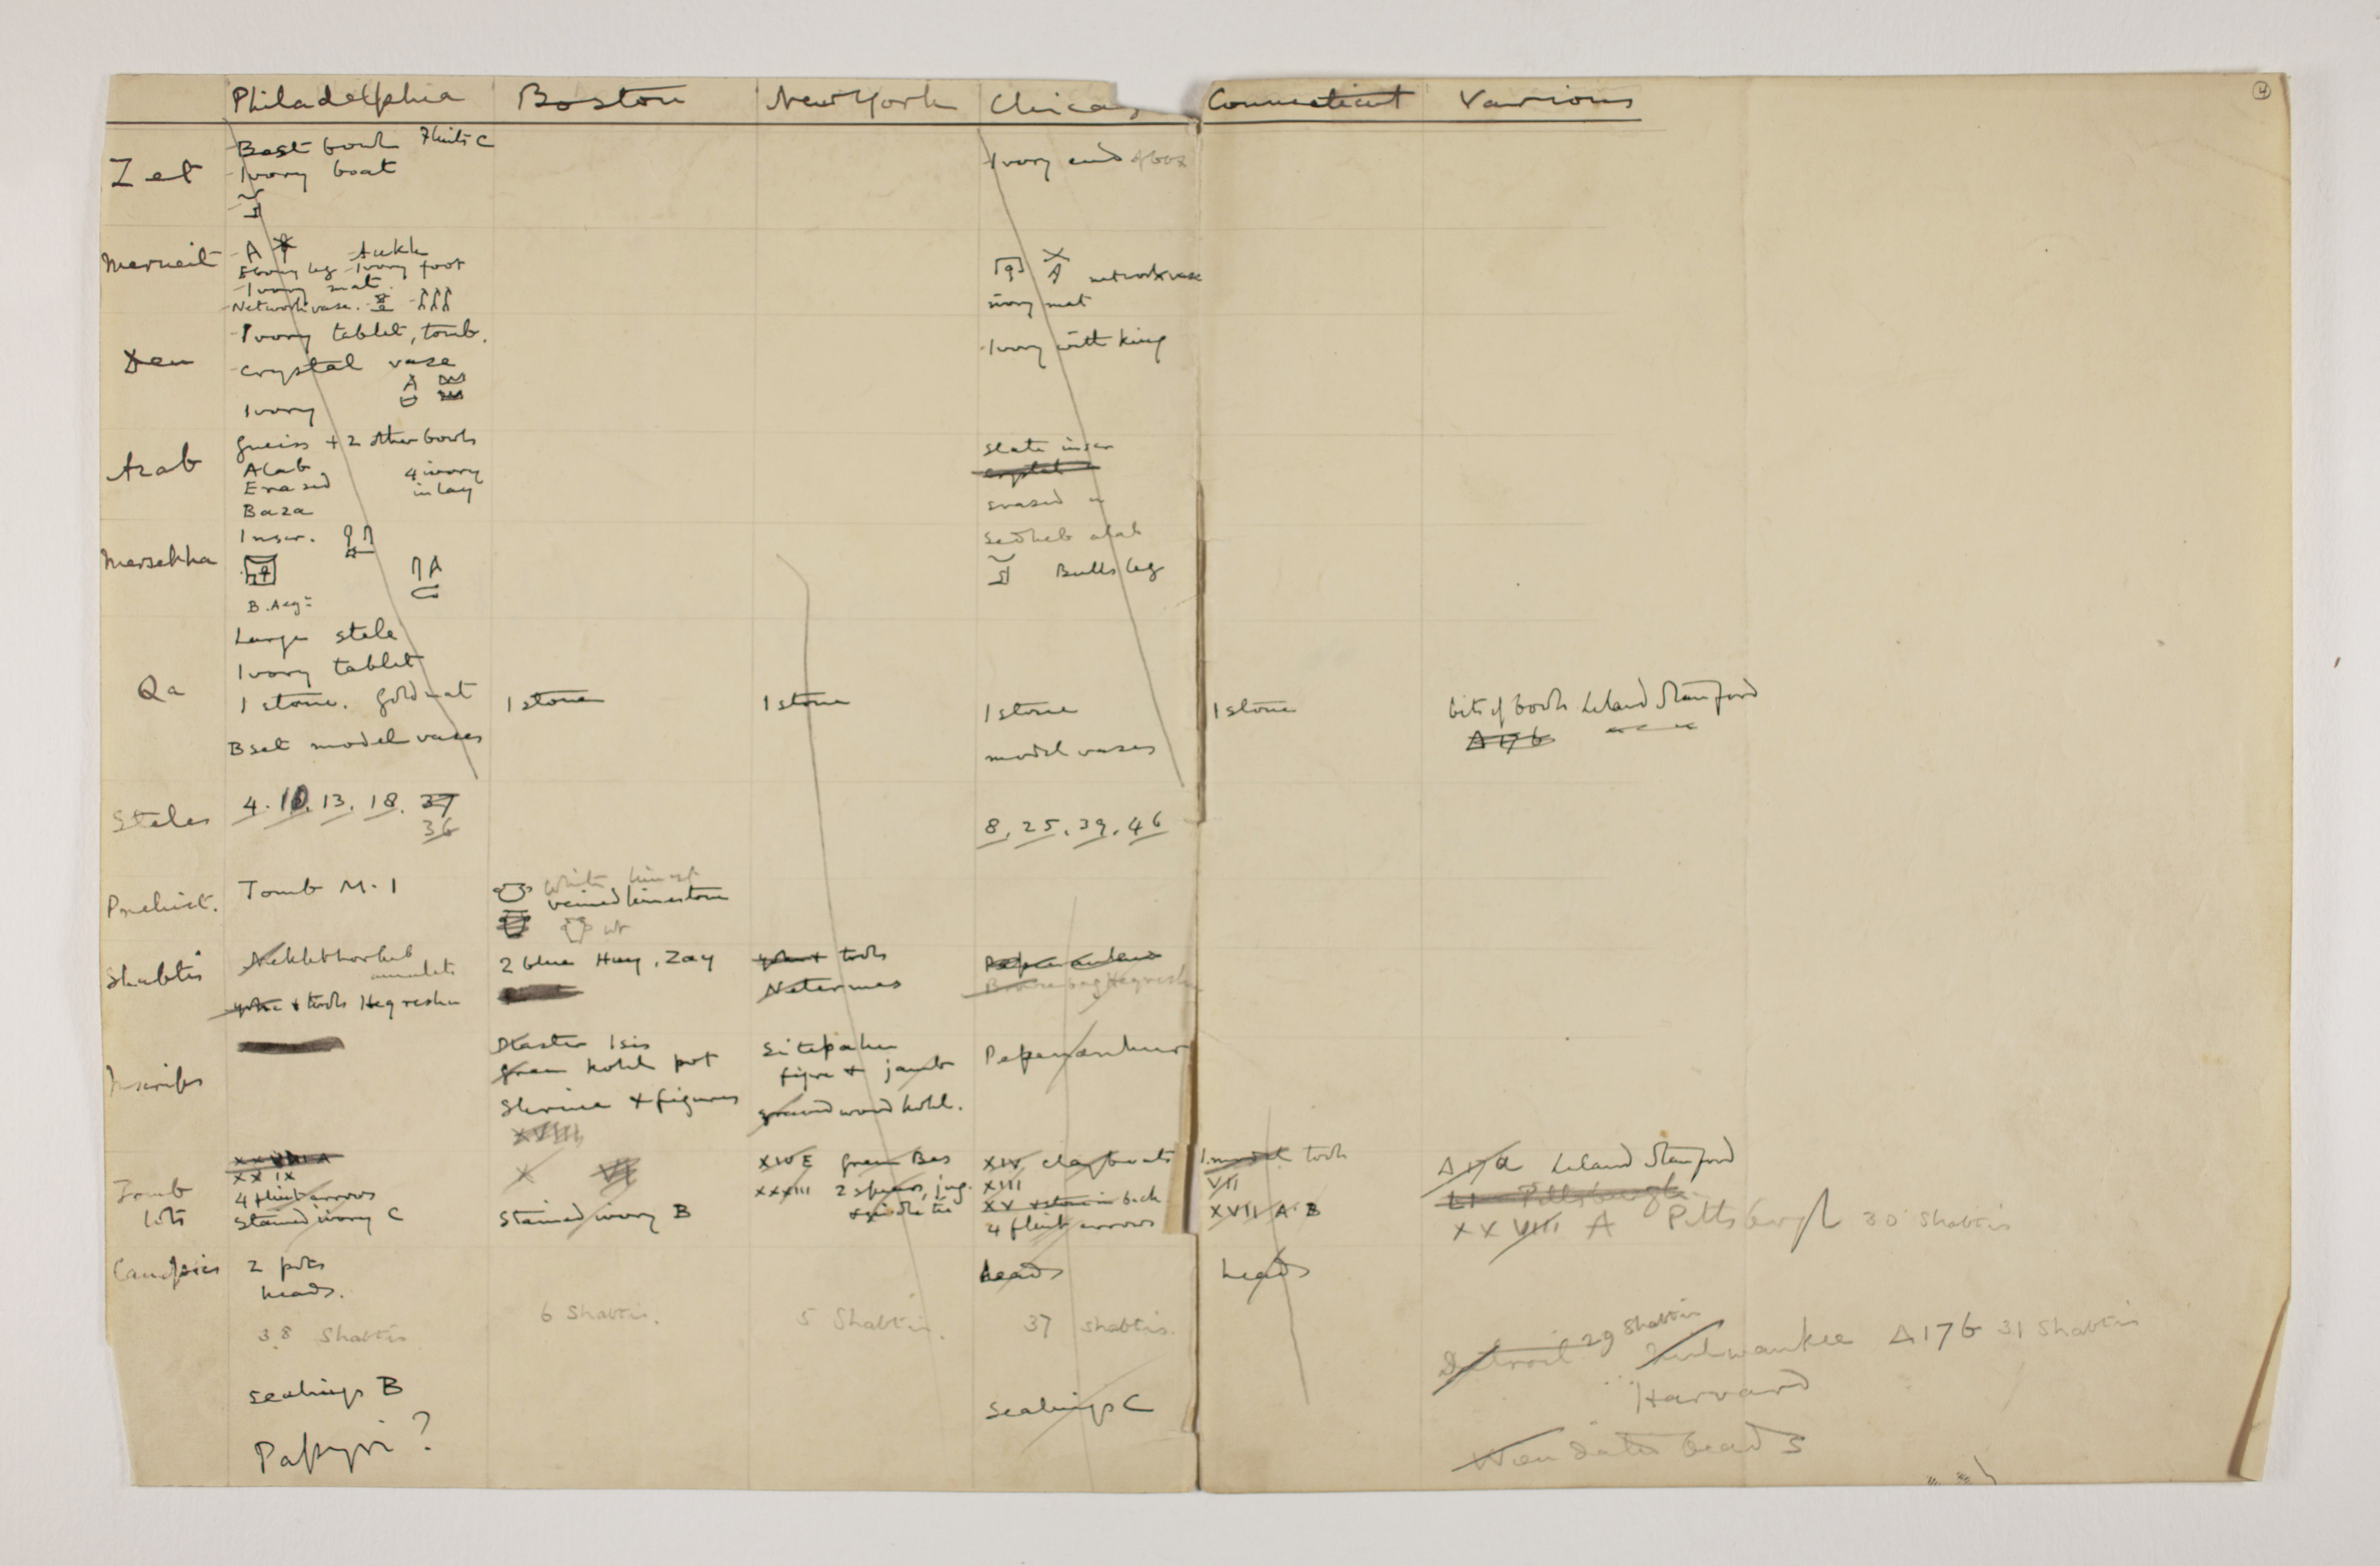 Philadelphia Boston New York Chicag Connecticut Various
4
Zet
Best bowl Flints C
Ivory boat
Ivory end of box
Merneit
A Ankh
Ebony leg Ivory foot
Ivory mat
Network vase.
network vase
ivory mat
Den
Ivory tablet, tomb.
crystal vase
Ivory
Ivory with king
Azab
Gneiss + 2 other bowls
Alab 4 ivory
Erased inlay
Baza
Slate inscr
crystal
erased
Mersekha
Inscr.
B. Aeg=
Sedheb alab
Bulls leg
Qa
Large stele
Ivory tablet
1 stone. gold mat
B set model vases
1 stone
1 stone
1 stone
model vases
1 stone
bits of bowls Leland Stanford
A 17 b
Steles
4. 10. 13. 18. 37
36
8, 25, 39, 46
Prehist.
Tomb M. 1
White limest
veined limestone
wt
Shabtis
Nekhthorheb
amulets
yoke + tools Heqreshu
2 blue Huy, Zay
tools
Netermes
Pepenankhu
Heqreshu
Inscribs
Plaster Isis
green kohl pot
Shrine + figures
XVIII
figure + jamb
wood kohl.
Tomb
lots
XXVIII A
XXIX
4 flint arrows
Stained ivory C
X VI
Stained ivory B
XIV E green Bes
XXXIII 2 spears, jug.
XIV clay boats
XIII
XV back
4 flint arrows
model tools
VII
XVII A. B
A 17 a Leland Stanford
L1 Pittsburgh
XXVIII A Pittsburgh 30 Shabtis
Canopics
2 pots
heads.
heads
heads
38 Shabtis
6 Shabtis.
5 Shabtis.
37 Shabtis.
Detroit 29 Shabtis
Milwaukee A 17 b 31 Shabtis
Harvard
Sealings B
Sealings C
Papyri ?
beads